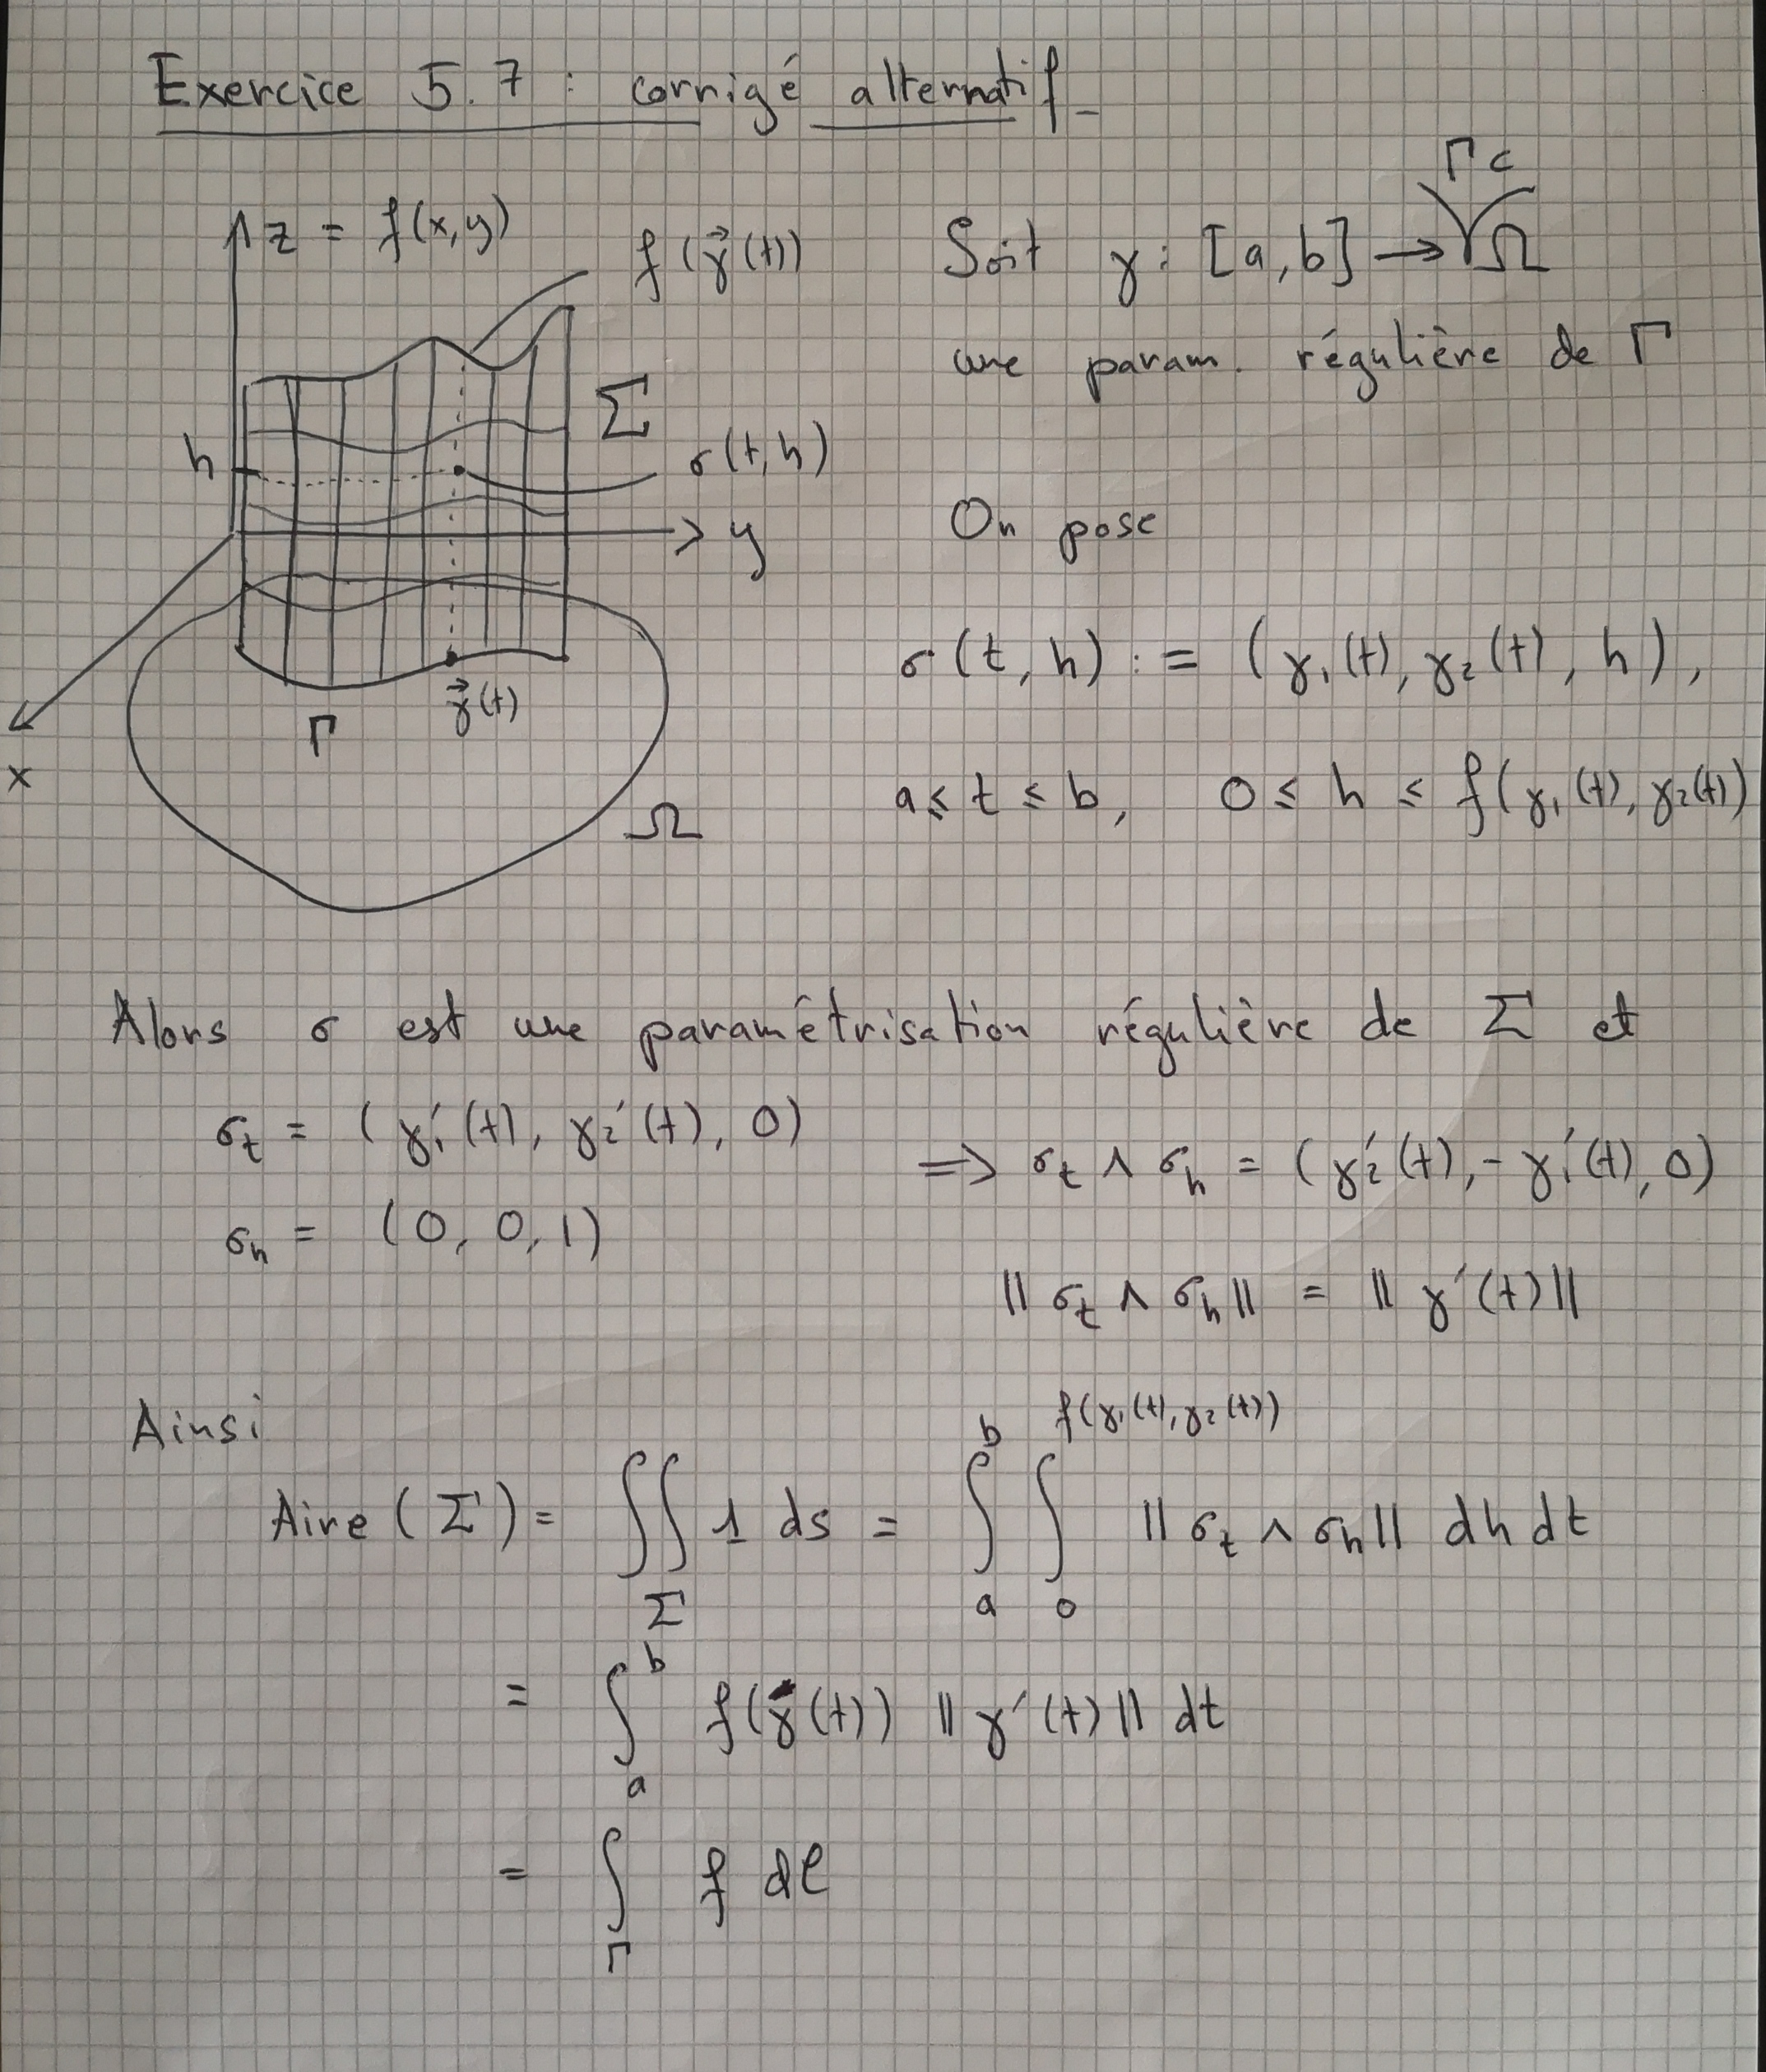 Exercice 5.7 : corrigé alternatif
z = f(x,y)
f(γ⃗(t))
Σ
h
σ(t,h)
y
γ⃗(t)
Γ
x
Ω
Soit γ: [a,b] → Γ ⊂ Ω
une param. régulière de Γ
On pose
σ(t,h) := (γ₁(t), γ₂(t), h),
a ≤ t ≤ b, 0 ≤ h ≤ f(γ₁(t), γ₂(t))
Alors σ est une paramétrisation régulière de Σ et
σₜ = (γ₁′(t), γ₂′(t), 0)
σₕ = (0, 0, 1)
⟹ σₜ ∧ σₕ = (γ₂′(t), -γ₁′(t), 0)
‖σₜ ∧ σₕ‖ = ‖γ′(t)‖
Ainsi
Aire(Σ) = ∬_Σ 1 ds = ∫_a^b ∫_0^{f(γ₁(t), γ₂(t))} ‖σₜ ∧ σₕ‖ dh dt
= ∫_a^b f(γ⃗(t)) ‖γ′(t)‖ dt
= ∫_Γ f dℓ